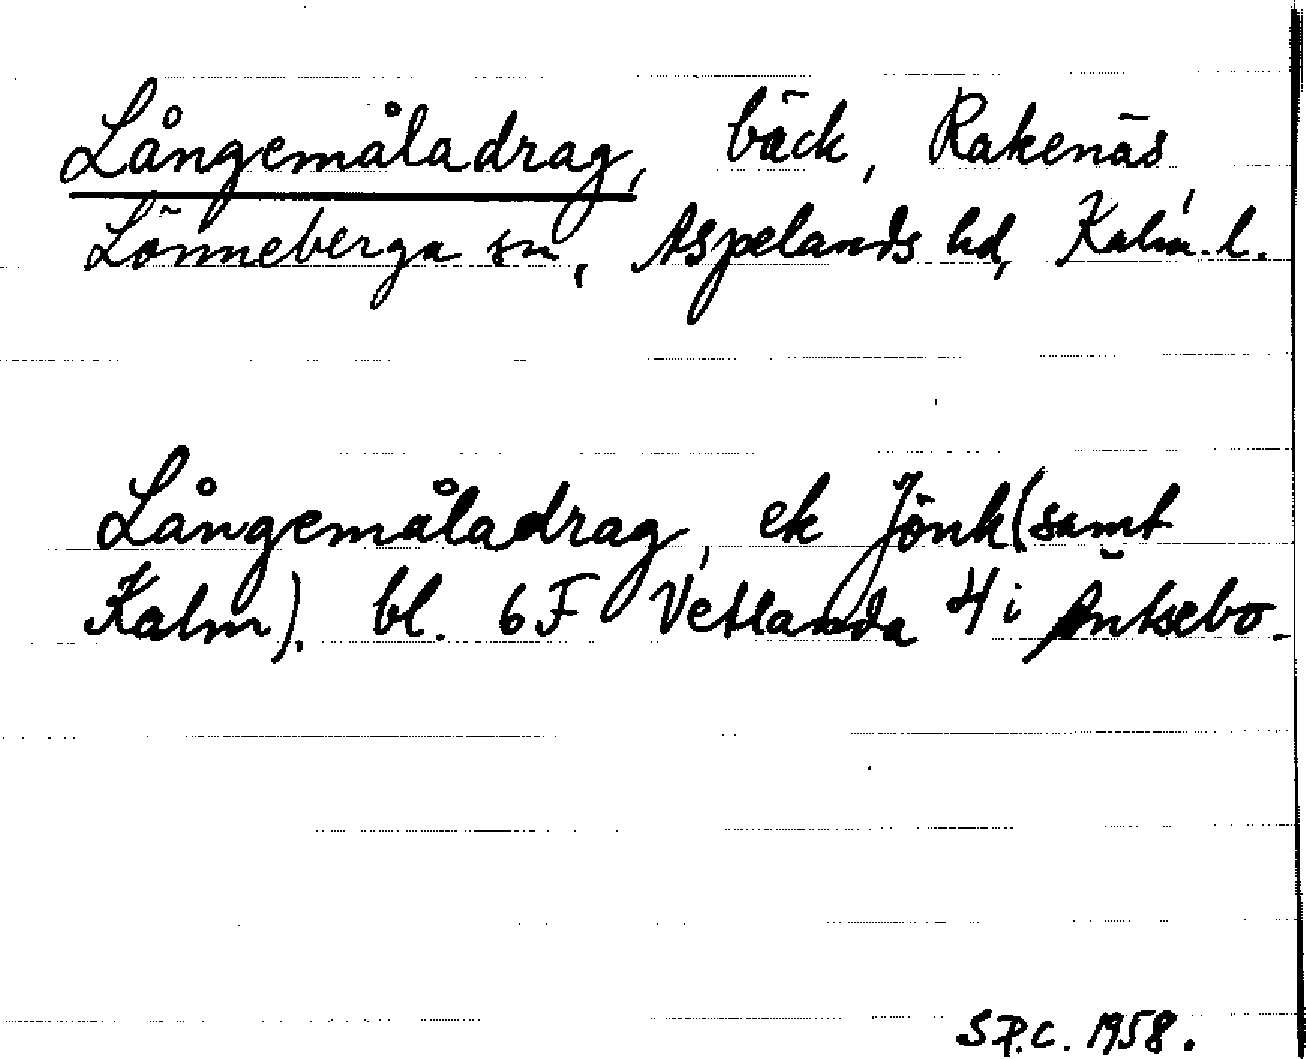 Långemåladrag, bäck, Rakenäs
Lönneberga sn, Aspelands hd, Kalm. l.
Långemåladrag, ek Jönk (samt
Kalm). bl. 6F Vetlanda 4i
S.P.C. 1958.